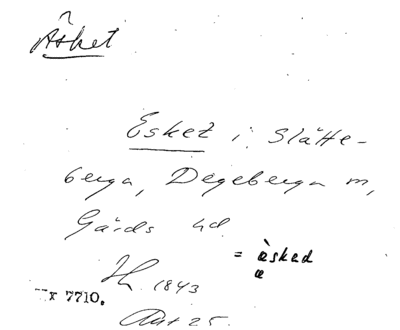 Äsket
Esket i Slätte-
berga, Degeberga m,
Gärds hd.
= æsked
æ
1843
x 7710.
25